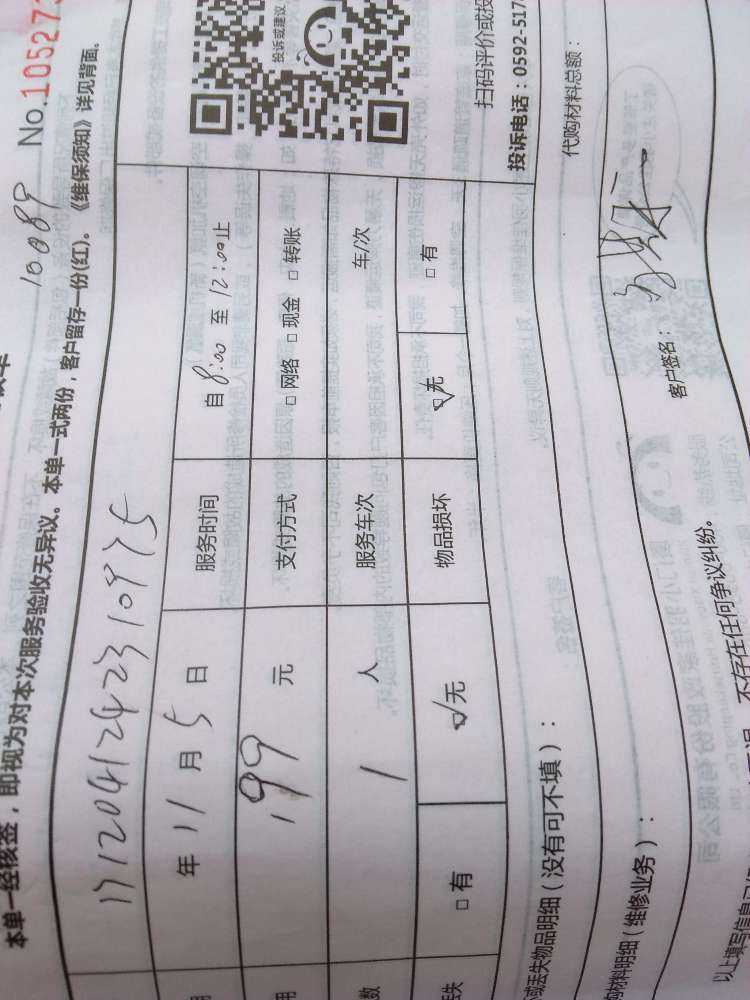 10089
No.105273
本单一经核签，即视为对本次服务验收无异议。本单一式两份，客户留存一份(红)。《维保须知》详见背面。
投诉或建议
年 11 月 5 日
服务时间
自 8:00 至 12:00 止
199 元
支付方式
□ 网络 □ 现金 □ 转账
数
1 人
服务车次
车/次
□ 有
☑ 无
物品损坏
☑ 无
□ 有
扫码评价或投
投诉电话：0592-517
或丢失物品明细（没有可不填）：
代购材料总额：
购材料明细（维修业务）：
客户签名：
不存在任何争议纠纷。